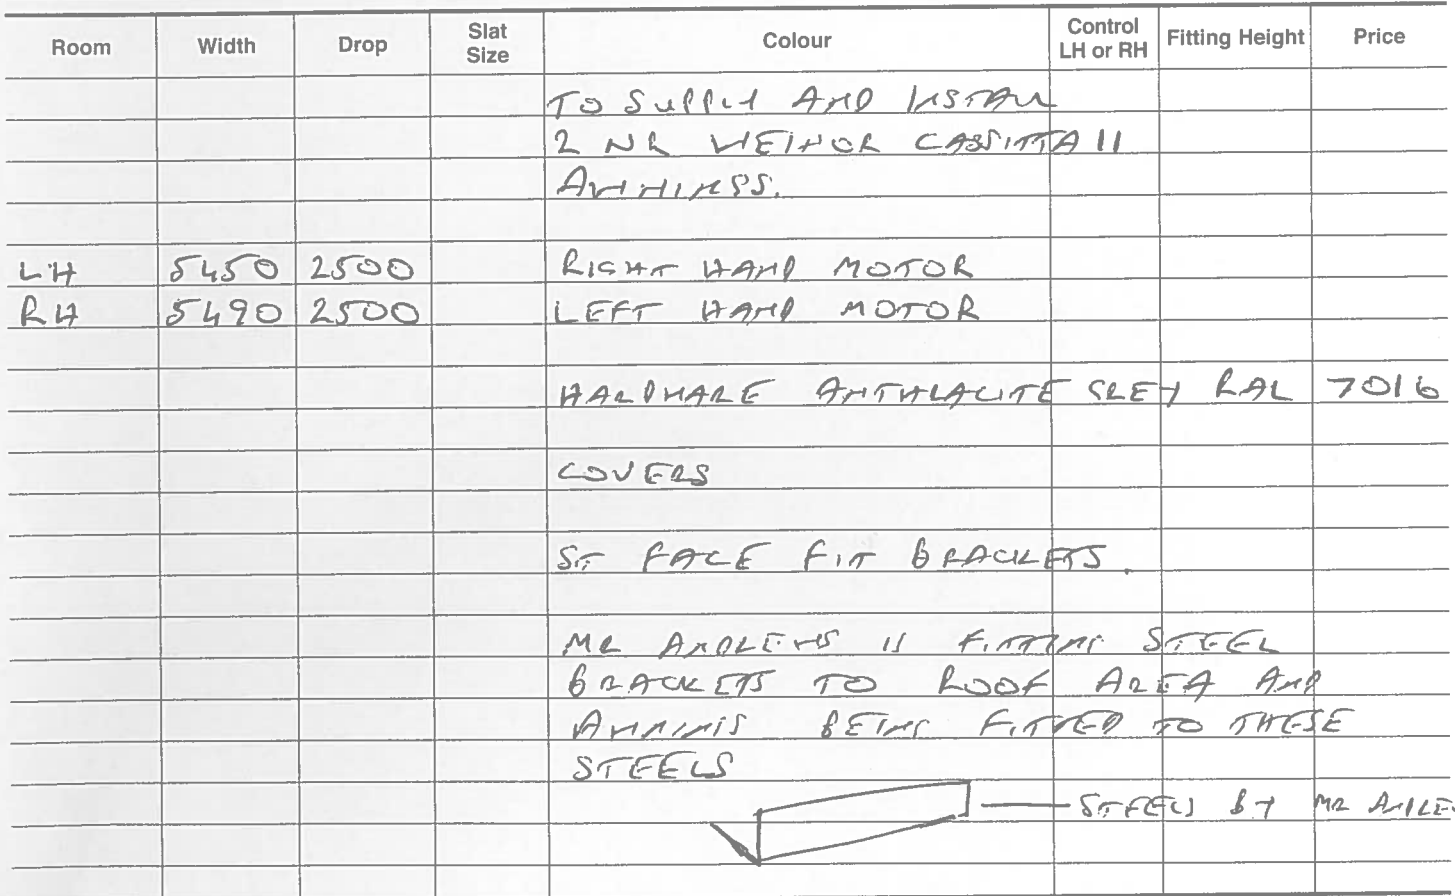 Room Width Drop Slat Size Colour Control LH or RH Fitting Height Price
TO SUPPLY AND INSTALL
2 NR WEINOR CASSITTA II
AWNINGS.
LH 5450 2500 RIGHT HAND MOTOR
RH 5490 2500 LEFT HAND MOTOR
HARDWARE ANTHRACITE GREY RAL 7016
COVERS
ST FACE FIT BRACKETS.
MR ANDREWS IS FITTING STEEL
BRACKETS TO ROOF AREA AND
AWNINGS BEING FITTED TO THESE
STEELS
STEELS BY MR